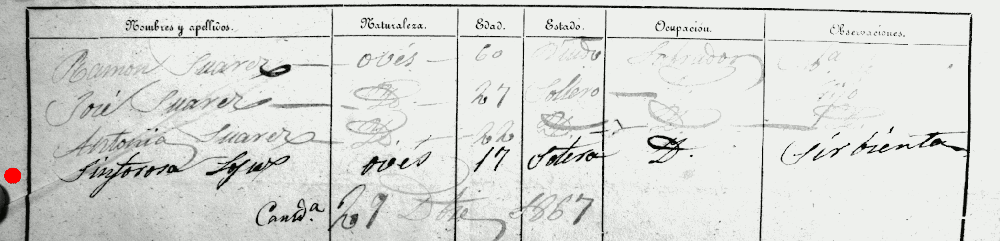 Nombres y apellidos. Naturaleza. Edad. Estado. Ocupación. Observaciones.
Ramón Suarez ovés 60 Labrador
José Suarez D. 27 Soltero D.
Antonia Suarez D. 22 D.
Sinforosa ovés 17 Soltera D. Sirbienta
29 Dbre 1867